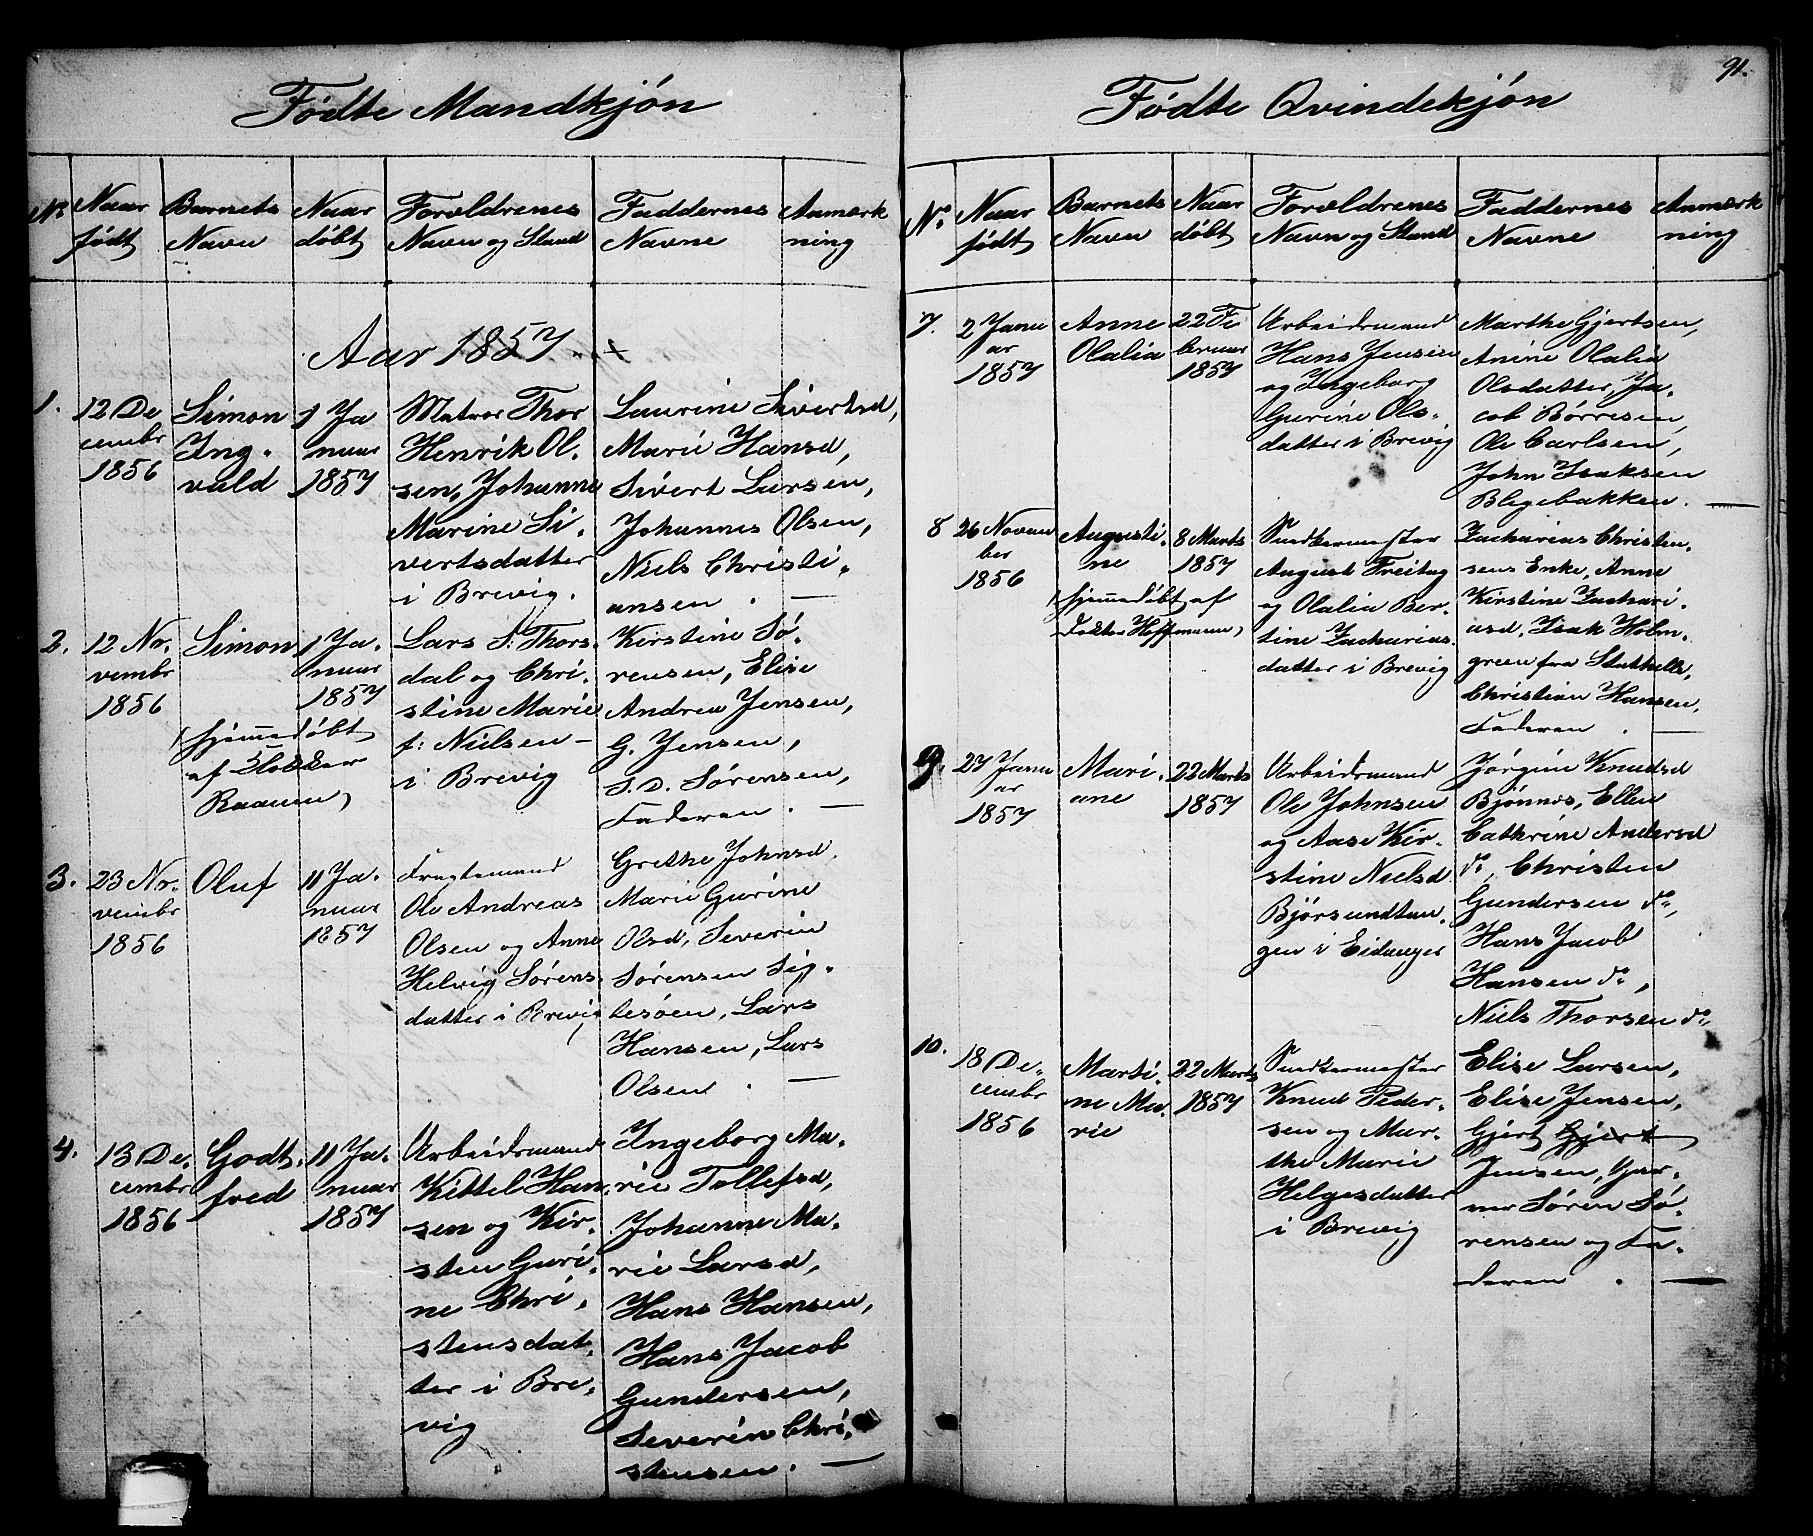 Fødte Mandkjøn
No
Naar
født
Barnets
Navn
Naar
døbt
Forældrenes
Navn og Stand
Faddernes
Navne
Anmærk
ning
Aar 1857
1.
12 De
cembr
1856
Simon
Ing.
vald
1 Ja
nuar
1857
Matros Thor
Henrik Ol.
sen, Johanne
Marine Si.
vertsdatter
i Brevig.
Laurine Sivertsd,
Marie Hansd,
Sivert Larsen,
Johannes Olsen,
Niels Christi.
ansen. —
2.
12 No.
vembr
1856
Simon
(hjemmedøbt
af Klokker
Raaum)
1 Ja.
nuar
1857
Lars S. Thors.
dal og Chri.
stine Marie
f: Nielsen —
i Brevig
Kirstine Sø.
rensen, Elise
Andrea Jensen,
G. Jensen,
S. D. Sørensen,
Faderen. —
3.
23 No.
vembr
1856
Oluf
11 Ja.
nuar
1857
Fragtemand
Ole Andreas
Olsen og Anne
Helvig Sørens
datter i Brevig
Grethe Johnsd.
Marie Gurine
Olsd, Severin
Sørensen Sig.
besøen, Lars
Hansen, Lars
Olsen. —
4.
13 De.
cembr
1856
Godt.
fred
11 Ja.
nuar
1857
Arbeidsmand
Kittel Han.
sen og Kir.
sten Guri.
ne Chri.
stensdat.
ter i Bre.
vig
Ingeborg Ma.
rie Tollefsd,
Johanne Ma.
rie Larsd,
Hans Hansen,
Hans Jacob
Gundersen,
Severin Chri.
stensen. —
91.
Fødte Qvindekjøn
No.
Naar
født
Barnets
Navn
Naar
døbt
Forældrenes
Navn og Stand
Faddernes
Navne
Anmærk
ning
7.
2 Janu
ar
1857
Anne
Olalia
22 Fe
bruar
1857
Arbeidsmand
Hans Jensen
og Ingeborg
Gurine Ols.
datter i Brevig
Marthe Gjertsen,
Anine Olalia
Olsdatter, Ja.
cob Børresen,
Ole Carlsen,
John Isaksen
Blegebakken. —
8
26 Novem
ber
1856
Augusti.
ne
(hjemmedøbt af
Doktor Hoffmann)
8 Marts
1857
Snedkermester
August Freitag
og Olalia Ber.
tine Zacharias.
datter i Brevig
Zacharias Christen.
sens Enke, Anne
Kirstine Zachari.
asd, Isak Holm.
green fra Stathelle,
Christian Hansen,
Faderen. —
9.
27 Janu
ar
1857
Mari.
ane
22 Marts
1857
Arbeidsmand
Ole Johnsen
og Aase Kir.
stine Nielsd
Bjørsundtan.
gen i Eidanger
Jørgine Knudsd
Bjønnes, Ellen
Cathrine Andersd
do, Christen
Gundersen do,
Hans Jacob
Hansen do,
Niels Thorsen do
10.
18 De.
cembr
1856
Marti.
ne Ma.
rie
22 Marts
1857
Snedkermester
Knud Peder.
sen og Mar.
the Marie
Helgesdatter
i Brevig
Elise Larsen,
Elise Jensen,
Gjert Gjert
Jensen, Gar.
ver Søren Sø.
rensen og Fa.
deren. —